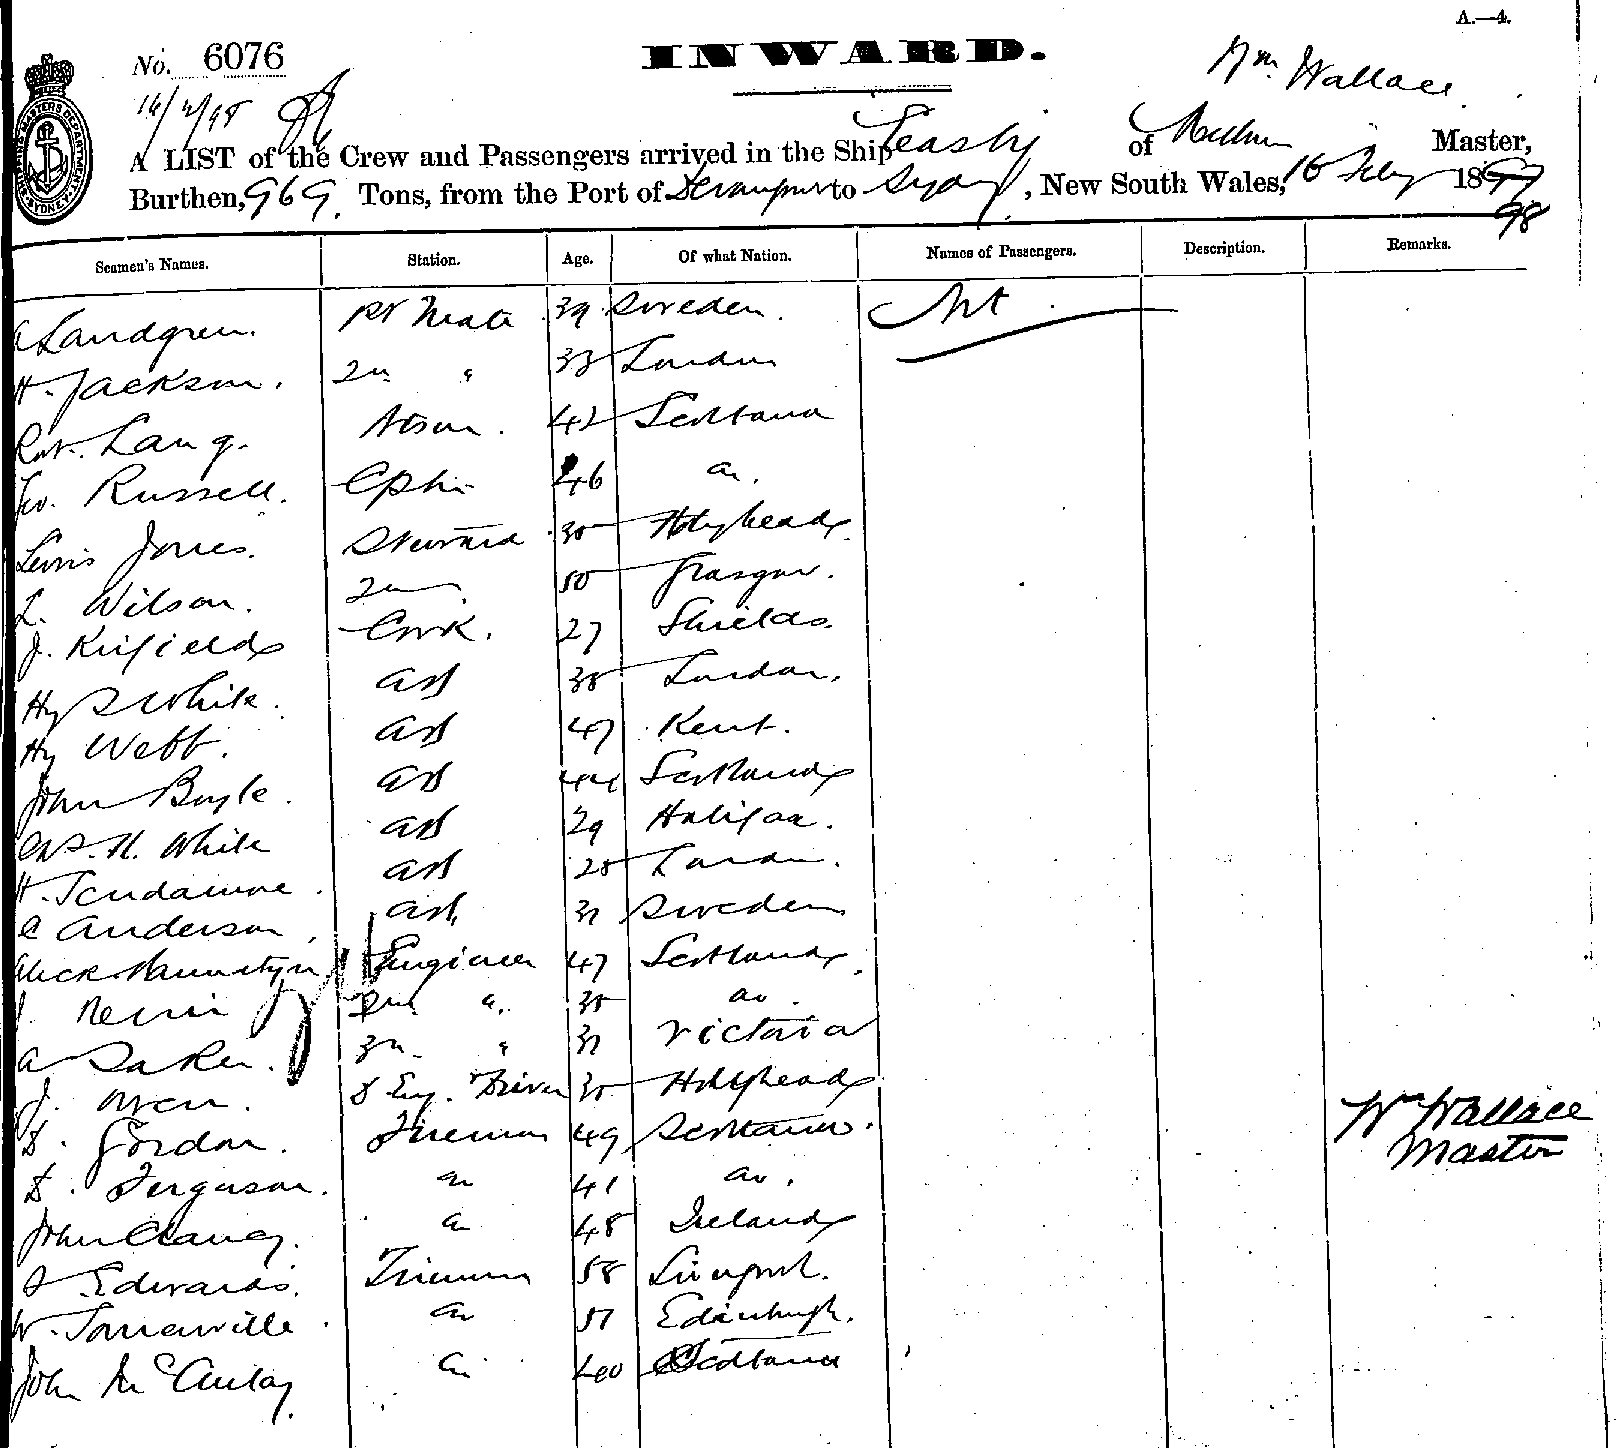 A.—4.
No. 6076
INWARD.
Wm. Wallace
16/2/98
A LIST of the Crew and Passengers arrived in the Ship of Master,
Burthen, 969 Tons, from the Port of Devonport to Sydney, New South Wales, 16 Feby 1897
98
Seamen's Names. Station. Age. Of what Nation. Names of Passengers. Description. Remarks.
Landgren. Mate 39 Sweden.
H. Jackson. 2n " 33 London
Rot. Lang. Bosun. 42 Scotland
Russell. 46 do.
Lewis Jones. Steward 35 Holyhead
L. Wilson. 2n 50 Glasgow.
J. Cook. 27 Shields
Hy S White. AB 38 London.
Hy Webb. AB 47 Kent.
John Boyle. AB 44 Scotland
H. White AB 29 Halifax.
H. AB 28 London.
C Anderson AB 31 Sweden
Alick Engineer 47 Scotland
J. 2nd " 35 do.
A 3n " 31 Victoria
J. Owen. D Eng. Driver 35 Holyhead
D. Gordon. Fireman 49 Scotland.
Wm Wallace
Master
D. Ferguson. do 41 do.
John Clancy. do 48 Ireland
Edwards. Trimmer 58 Liverpool.
W. Somerville do 51 Edinburgh.
John McAulay do 40 Scotland